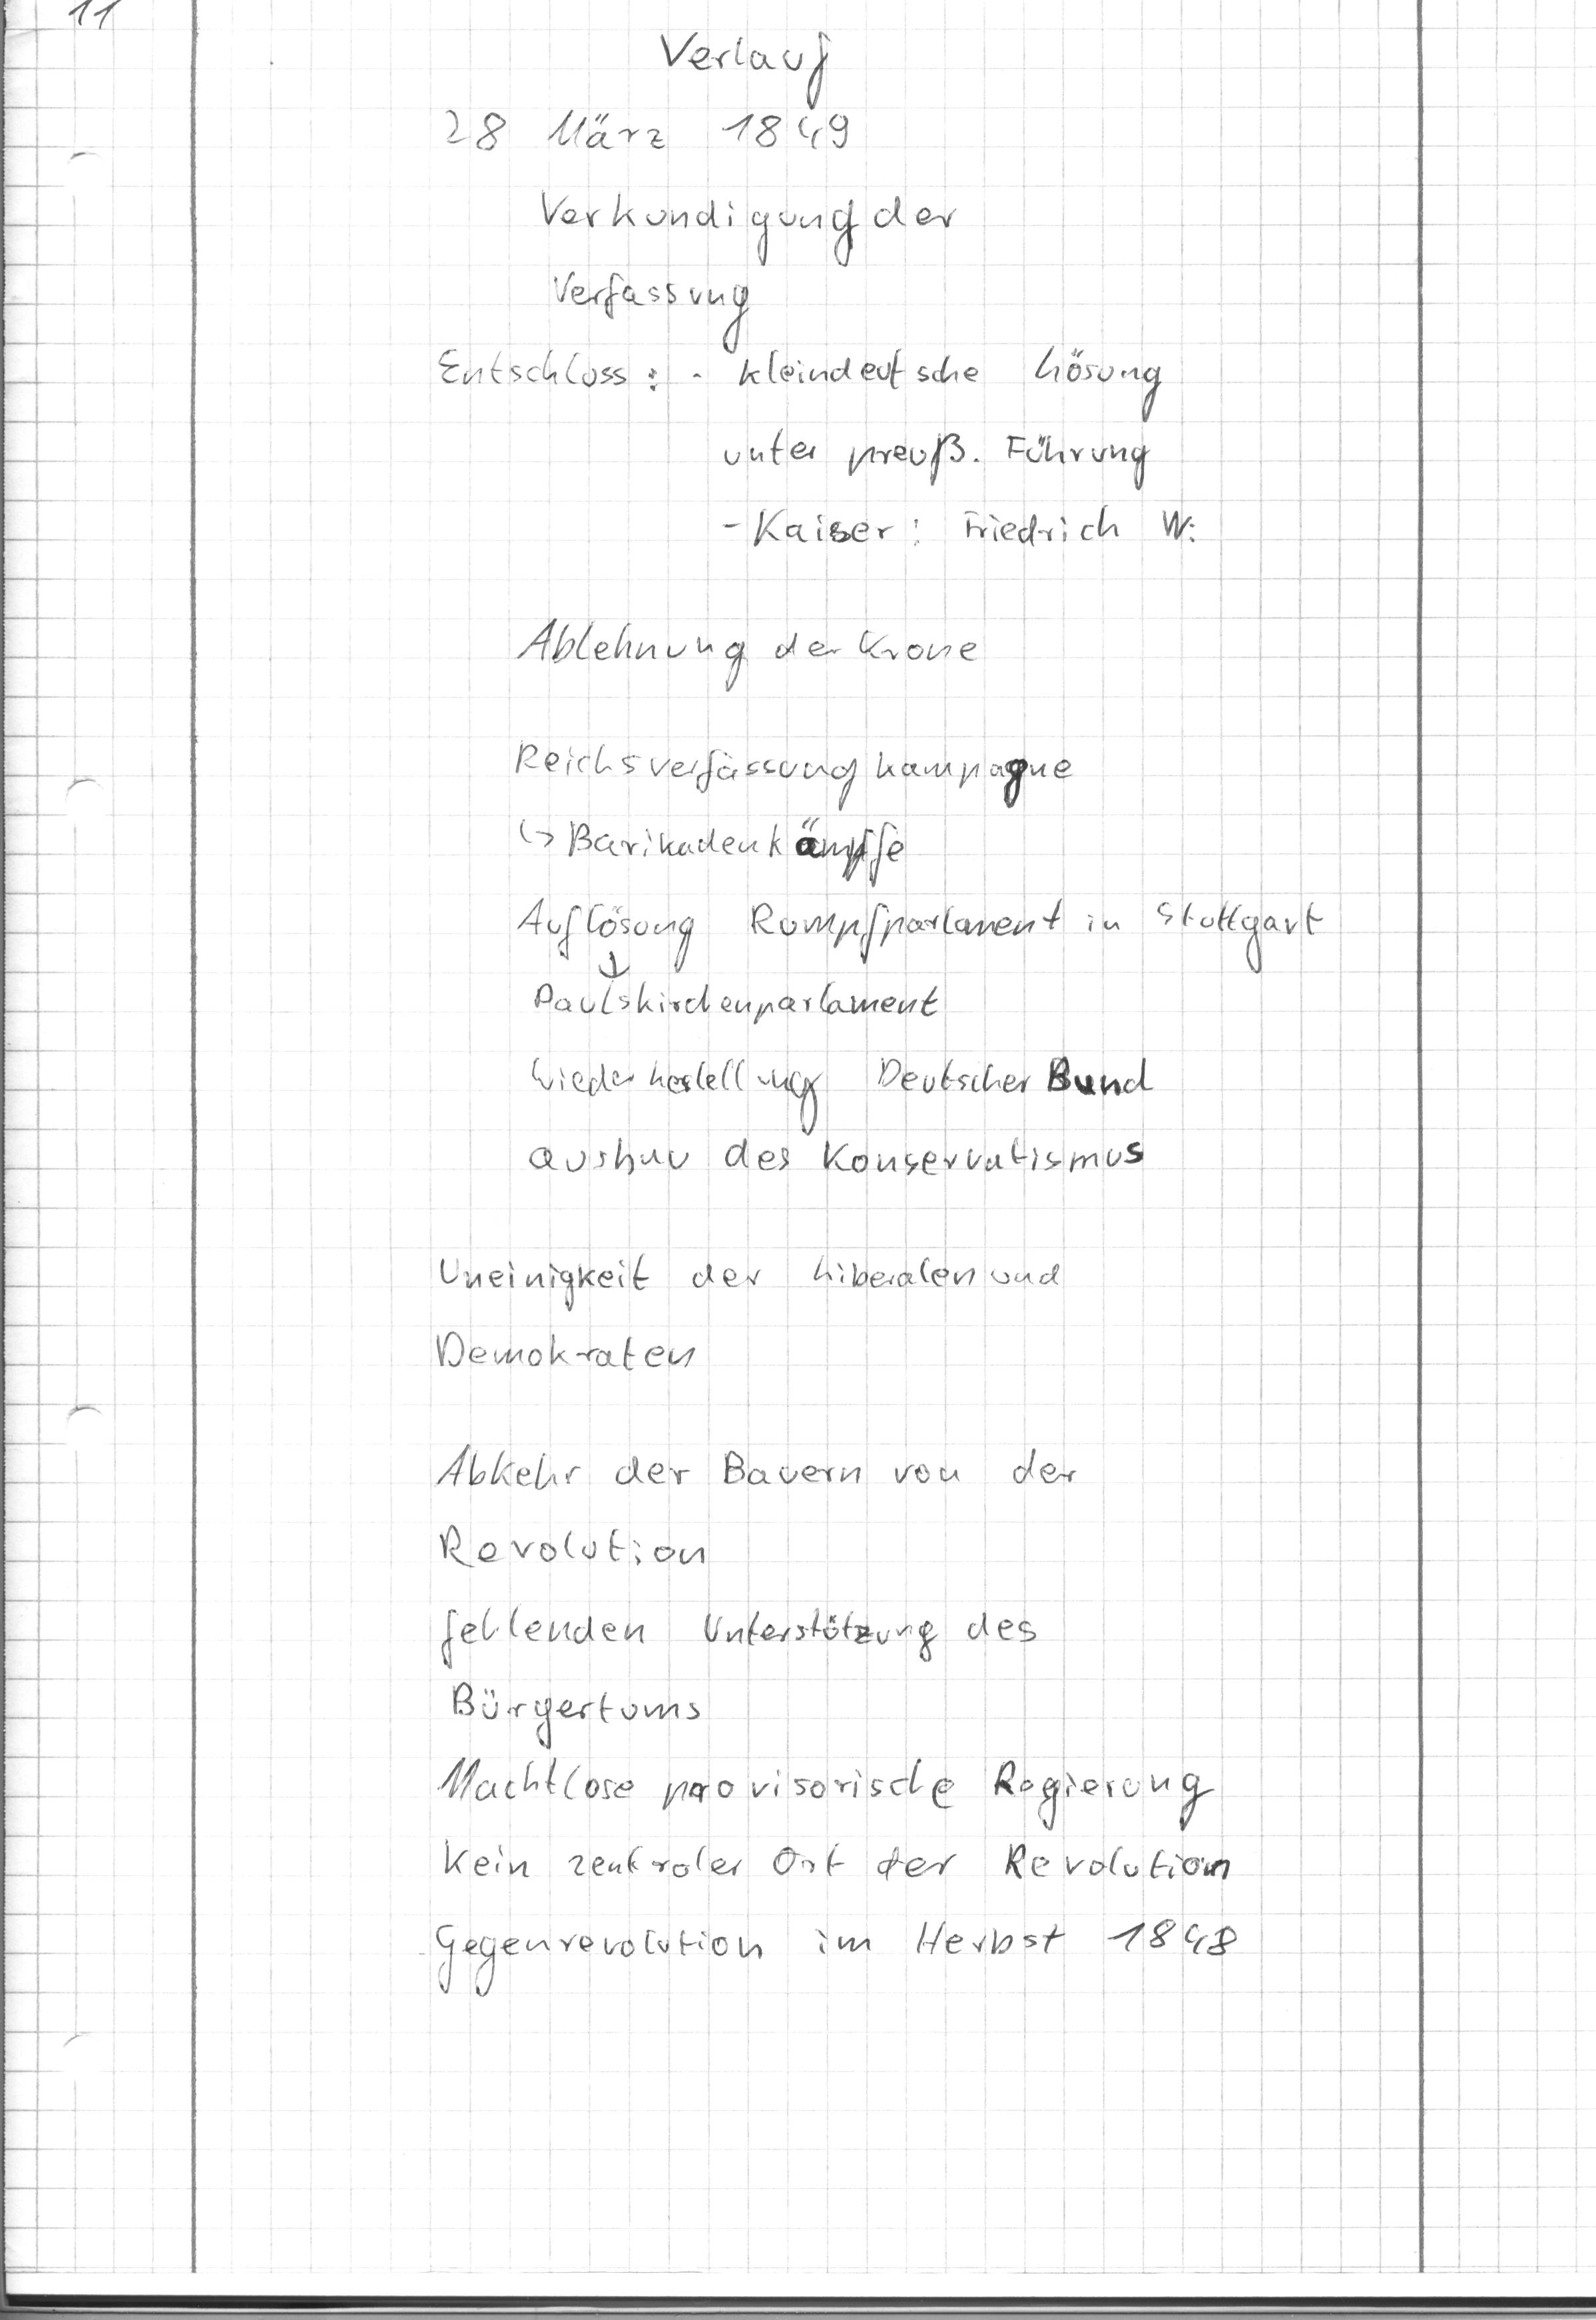 11
Verlauf
28 März 1849
Verkundigung der
Verfassung
Entschluss: - kleindeutsche Lösung
unter preuß. Führung
- Kaiser: Friedrich W.
Ablehnung der Krone
Reichsverfassung kampagne
↳ Barikadenkämpfe
Auflösung Rumpfparlament in Stuttgart
↓
Paulskirchenparlament
Wiederherstellung Deutscher Bund
ausbau des Konservatismus
Uneinigkeit der Liberalen und
Demokraten
Abkehr der Bauern von der
Revolution
fehlenden Unterstützung des
Bürgertums
Machtlose provisorische Regierung
Kein zentraler Ort der Revolution
Gegenrevolution im Herbst 1848